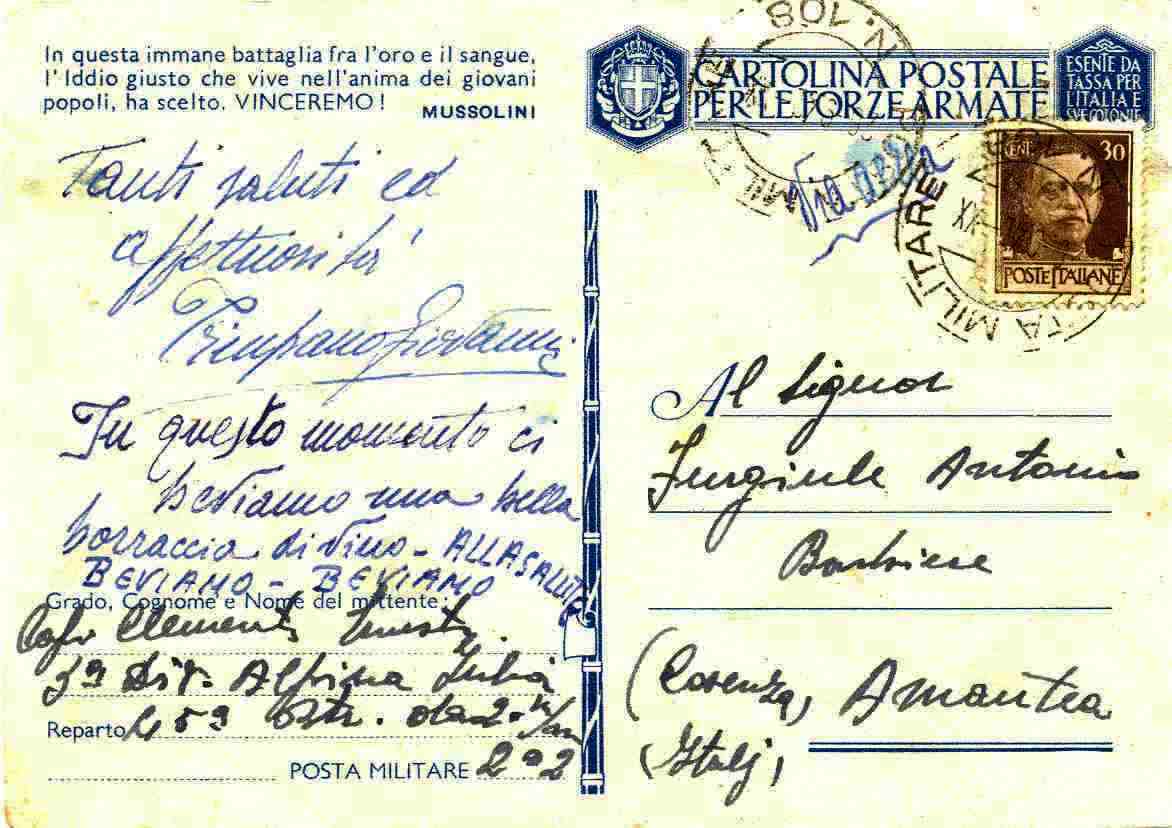 In questa immane battaglia fra l'oro e il sangue,
l'Iddio giusto che vive nell'anima dei giovani
popoli, ha scelto. VINCEREMO!
MUSSOLINI
Tanti saluti ed
affettuosità
Trimpano Giovanni
In questo momento ci
beviamo una bella
borraccia di vino - ALLA SALUTE
BEVIAMO - BEVIAMO
Grado, Cognome e Nome del mittente:
Clemente
3a Div. Alpina Julia
Reparto
POSTA MILITARE 202
CARTOLINA POSTALE
PER LE FORZE ARMATE
ESENTE DA
TASSA PER
L'ITALIA E
SUE COLONIE
N. 108
Via aerea
CENT. 30
POSTE ITALIANE
POSTA MILITARE
XX
Al Signor
Furgiuele Antonio
Barbiere
(Cosenza) Amantea
(Italy)